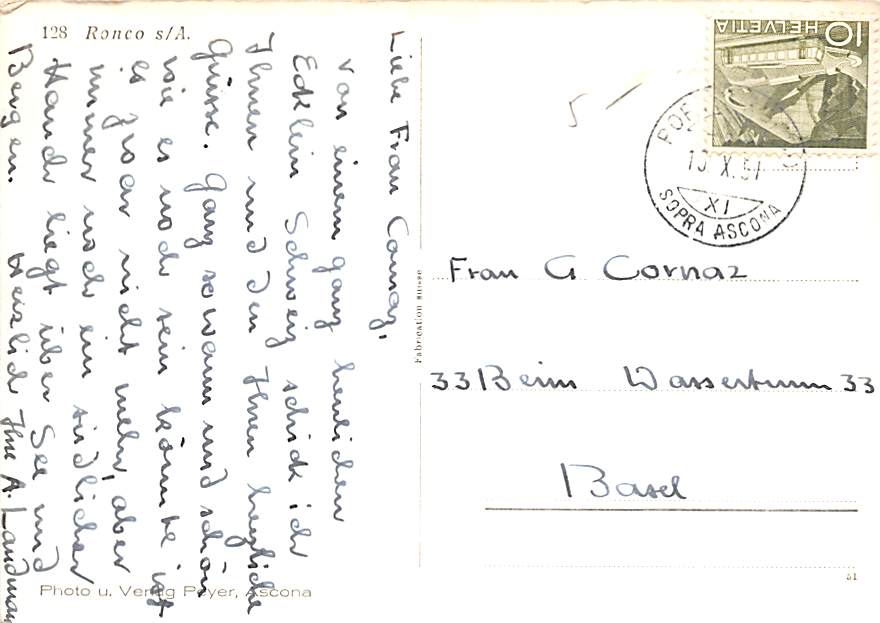 128 Ronco s/A.
Liebe Frau Cornaz,
von einem ganz herrlichen
Ecklein Schweiz schick ich
Ihnen und den Ihren herzliche
Grüsse. Ganz so warm und schön
wie es noch sein könnte ist
es zwar nicht mehr, aber
immer noch ein südlicher
Hauch liegt über See und
Bergen. Herzlich Ihre A. Landmann
Photo u. Verlag Peyer, Ascona
Fabrication suisse
HELVETIA
10
10.X.51
XI
SOPRA ASCONA
5
Frau G Cornaz
33 Beim Wasserturm 33
Basel
51